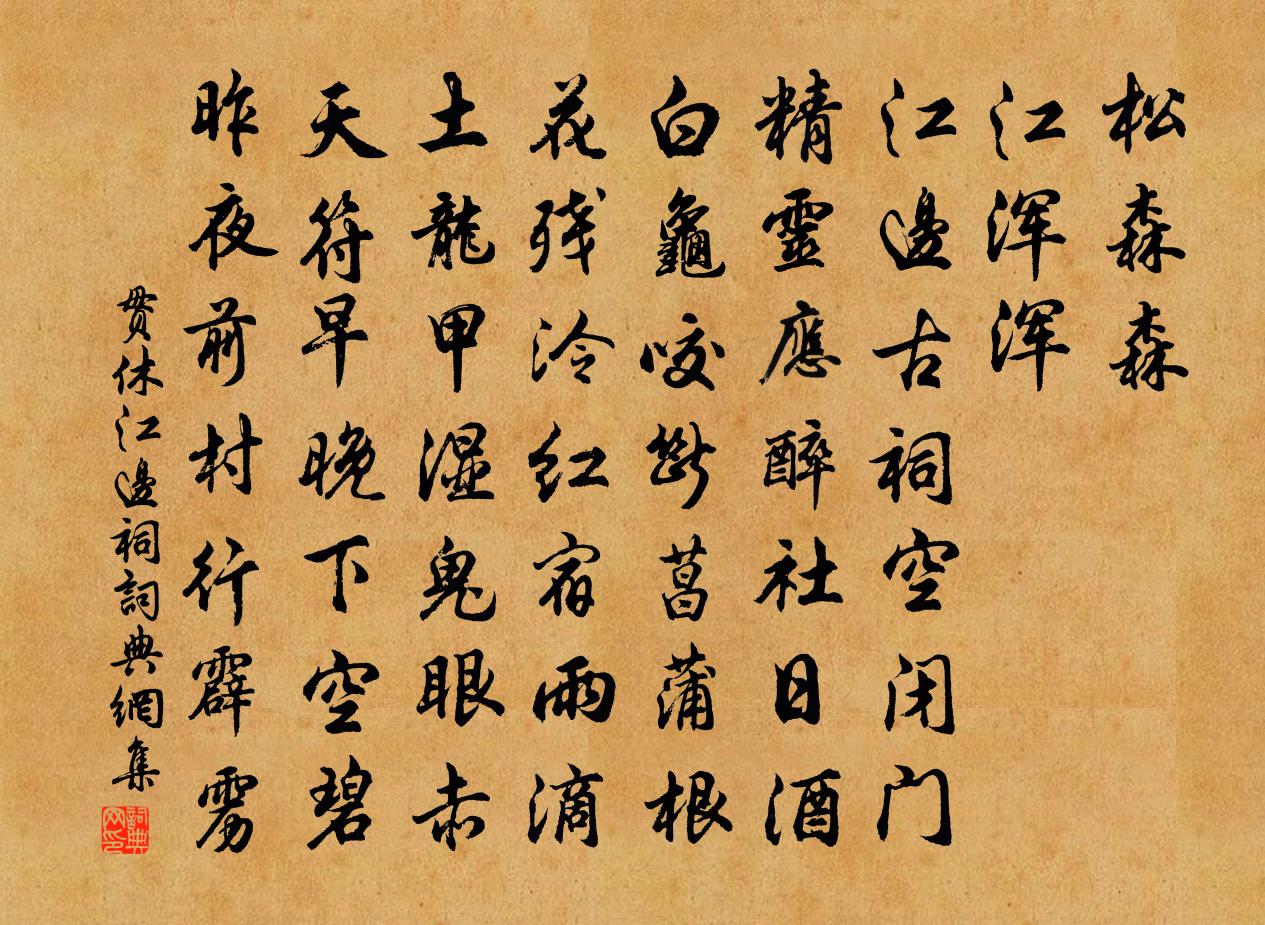 松森森
江浑浑
江邊古祠空闭门
精靈應醉社日酒
白龜咬斷菖蒲根
花残泠红宿雨滴
土龍甲湿鬼眼赤
天符早晚下空碧
昨夜前村行霹雳
贯休江邊祠詞典網集
詞典网印